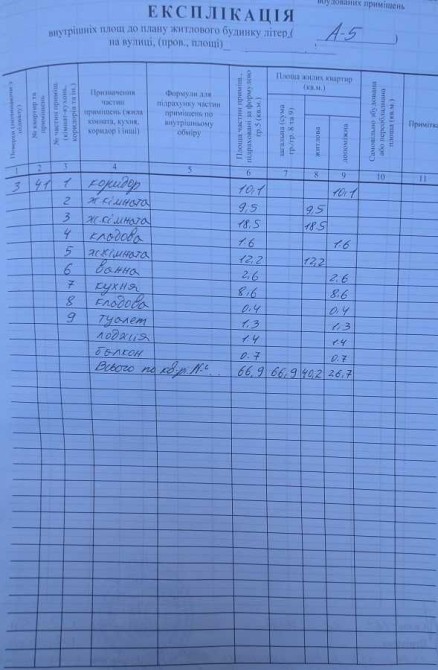 вбудованих приміщень
ЕКСПЛІКАЦІЯ
внутрішніх площ до плану житлового будинку літер ( А-5 )
на вулиці, (пров., площі)
Поверхи (починаючи з підвалу) № квартир та приміщень № частин приміщ. (кімнат-кухонь, коридорів та ін.) Призначення частин приміщень (жила кімната, кухня, коридор і інші) Формули для підрахунку частин приміщень по внутрішньому обміру Площа частин приміщ., підрахованих за формулою гр.5 (кв.м.) Площа жилих квартир (кв.м.) загальна (сума гр.гр. 8 та 9) житлова допоміжна Самовільно збудована або переобладнана площа (кв.м.) Примітка
1 2 3 4 5 6 7 8 9 10 11
3 41 1 коридор 10,1 10,1
2 ж.кімната 9,5 9,5
3 ж.кімната 18.5 18.5
4 кладова 1.6 1.6
5 ж.кімната 12,2 12,2
6 ванна 2,6 2,6
7 кухня 8,6 8,6
8 кладова 0,4 0,4
9 туалет 1,3 1,3
лоджія 1.4 1.4
балкон 0.7 0.7
Всього по кв. 66,9 66,9 40,2 26,7